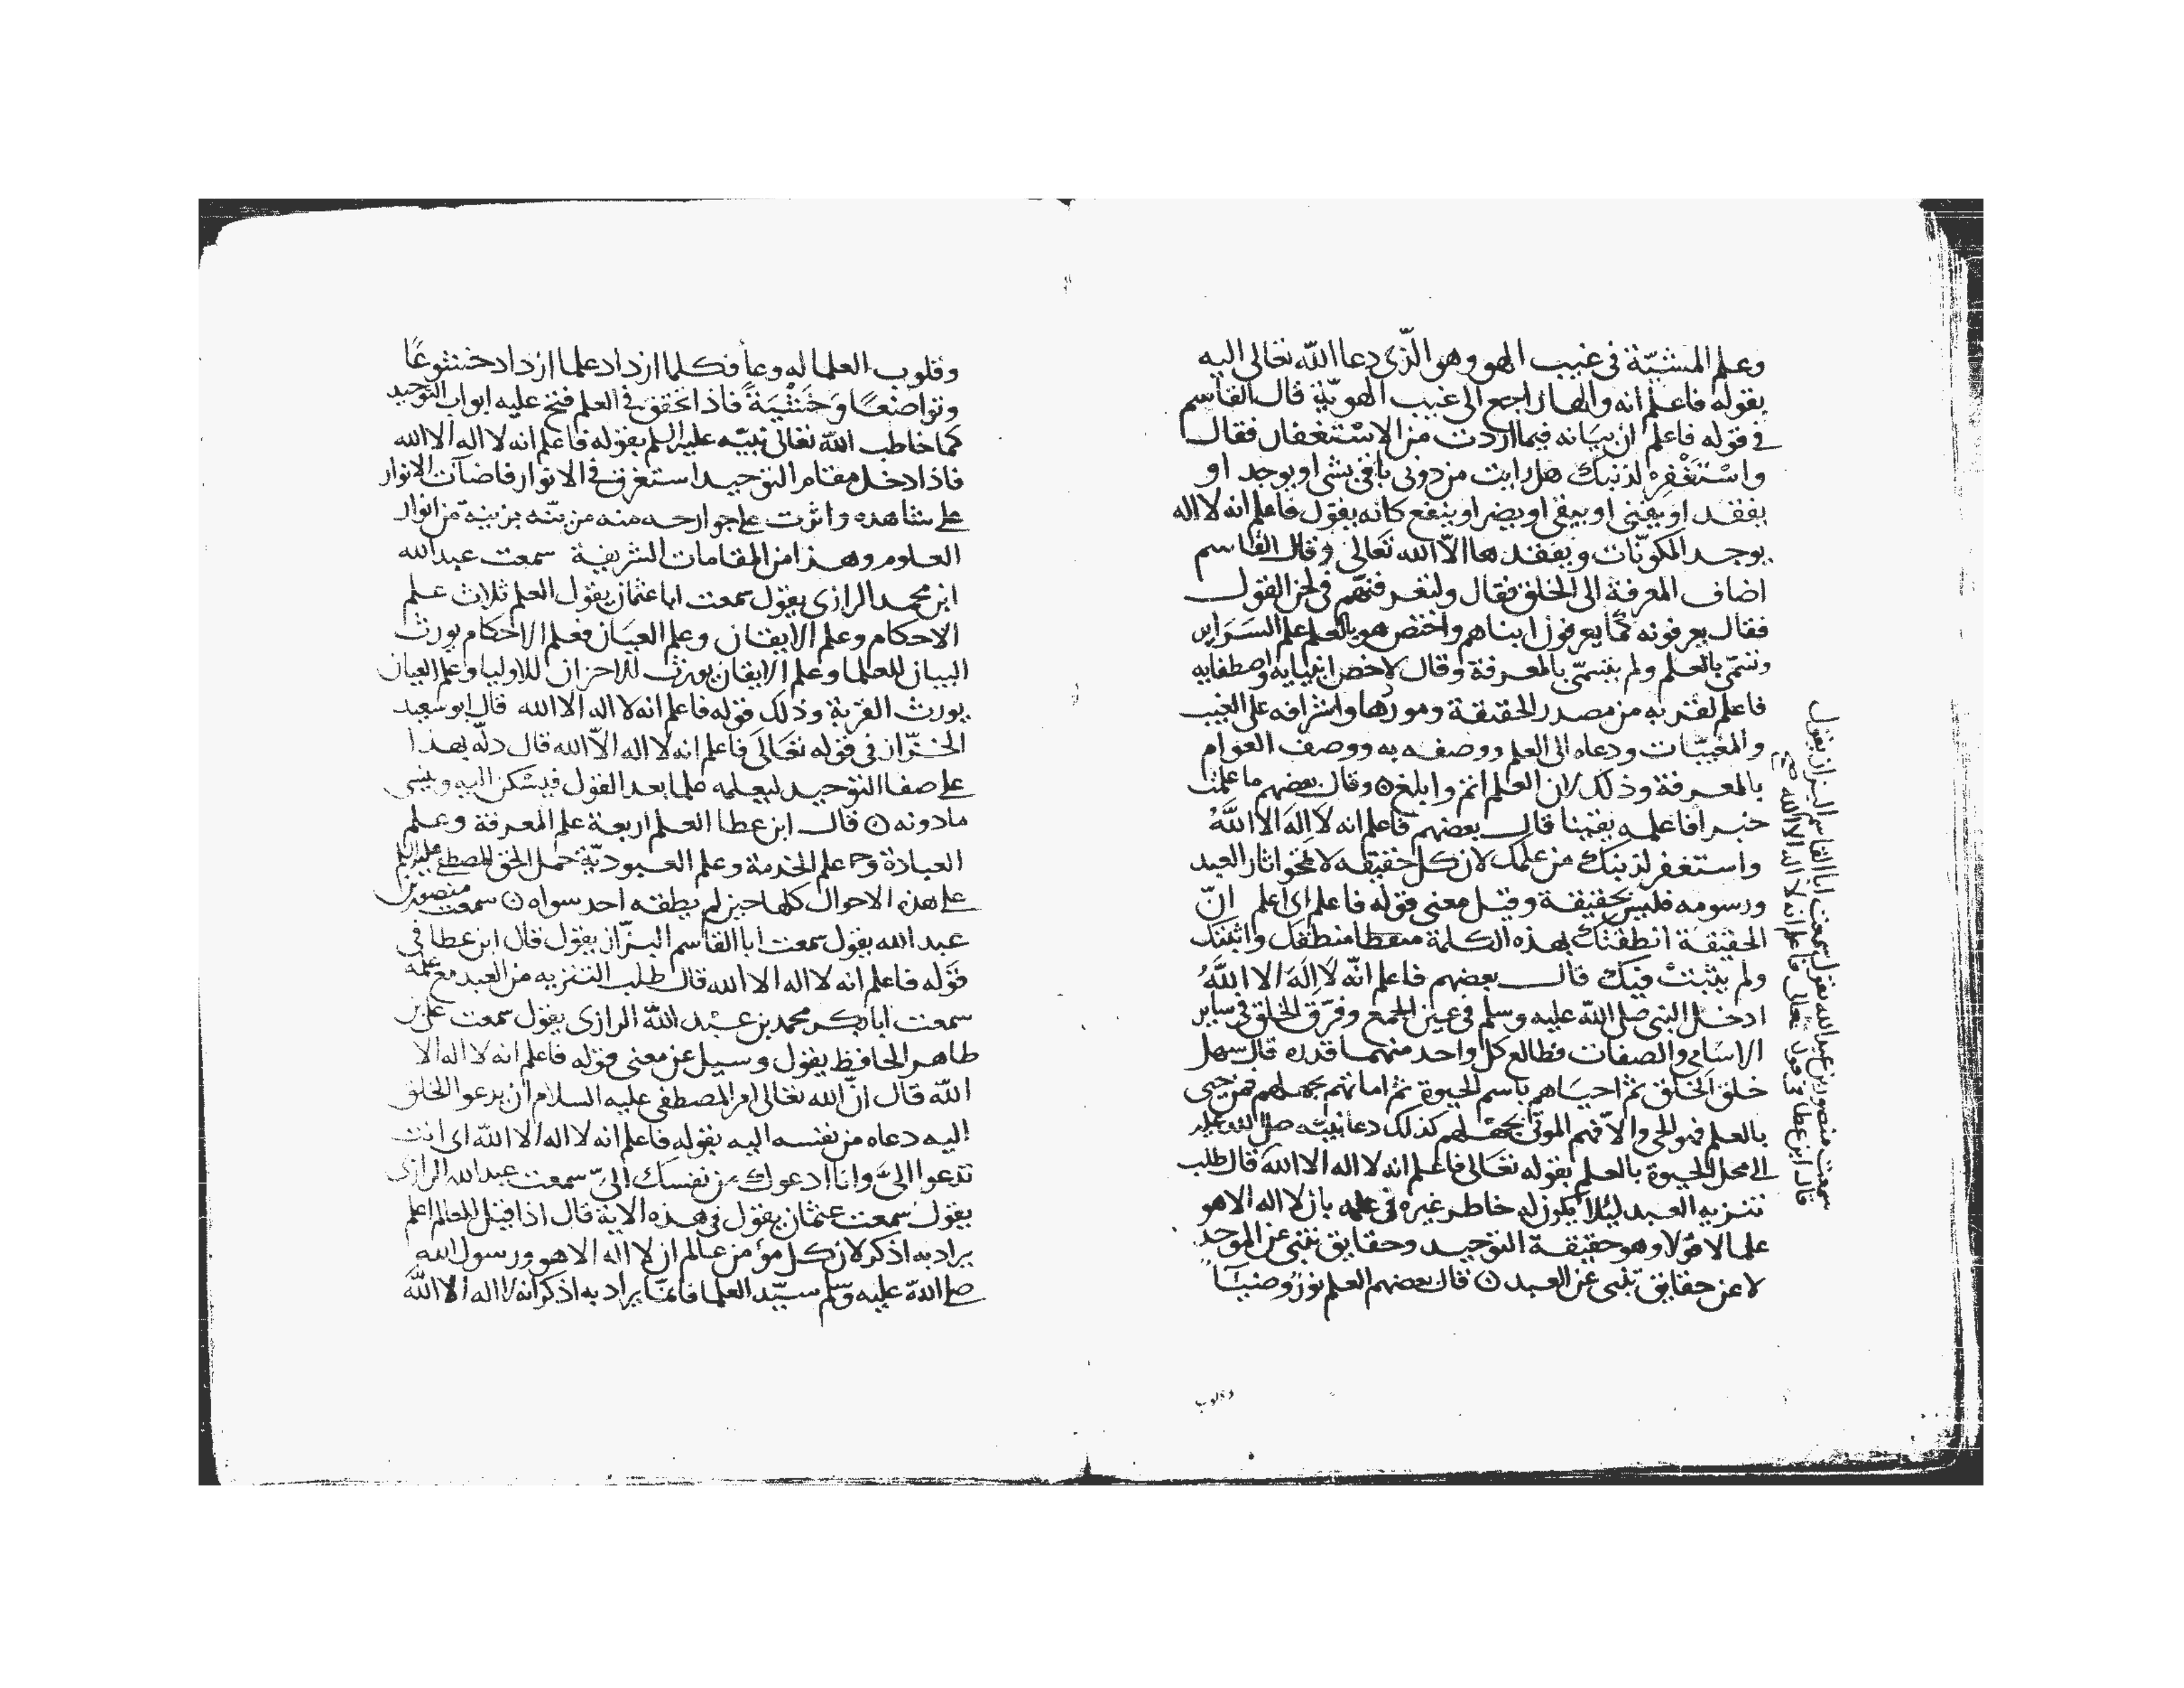 وعلم المشيّة في غيب الهو وهو الّذى دعا اللّه تعالى اليه
بقوله فاعلم انه والها راجع الى غيب الهويّة قال القاسم
في قوله فاعلم ان بيانه فيما اردت من الاستغفار فقال
واسْتَغْفِرْ لذنبك هل رايت من دونى باقى بشى او يوجد او
يفقد او يفنى او يبقى او يضر او ينفع كانه يقول فاعلم انه لا اله
يوجد المكوّنات ويفقدها الّا الله تعالى وقال القاسم
اضاف المعرفة الى الخلق فقال ولتعرفنّهم فى لحن القول
فقال يعرفونه كما يعرفون ابناهم واختص هو بالعلم علم السَرَاير
وتسمّى بالعلم ولم يتسمّى بالمعرفة وقال لاخص انبيايه واصطفايه
فاعلم لقربه من مصدر الحقيقة وموردها واشرافه على الغيب
والمغيبّات ودعاه الى العلم ووصفه به ووصف العوام
بالمعرفة وذلك لان العلم اتم وابلغ ن وقال بعضهم ما علمت
خبرا فاعلمه يقينا قال بعضهم فاعلم انه لَا اِلَهَ الا اللَّهُ
واستغفر لذنبك من علمك لان كل حقيقه لا تمحوا اثار العبد
ورسومه فليس بحقيقة وقيل معنى قوله فاعلم اى اعلم انّ
الحقيقة انطقتك بهذه الكلمة منطقك واثبتك
ولم يثبت فيك قال بعضهم فاعلم انّه لَا اِلَهَ الا اللَّهُ
ادخل النبى صلى اللّه عليه وسلم فى عين الجمع وفرّق الخلق فى ساير
الاسَامى والصفات فطالع كل واحد منهما قدره قال سهل
خلق الخلق ثم احيَاهم باسم الحيوة ثم اماتهم بجهلهم فمن حيى
بالعلم فهو الحى والّا فهم الموتى بجهلهم كذلك دعا نبيّه صلى الله عليه
الى محل الحيوة بالعلم بقوله تعَالى فاعلم انه لا اله الا الله قال طلب
تنزيه العبد ليلا يكون له خاطر غيره فى علمه بان لا اله الا هو
علما لا قولا وهو حقيقة التوحيد وحقايق تنبى عن الموحد
لا عن حقايق تنبى عن العبد ن قال بعضهم العلم نور وضيَآ
وقلوب
سمعت منصور بن عبد الله يقول سمعت ابا القاسم البزاز يقول
قال ابن عطا فى قوله تعالى فاعلم انه لا اله الا الله صح
وقلوب العلما له وعاً فكلما ازداد علما ازداد خشوعًا
وتواضعًا وَخَشْيَةً فاذا تحقق فى العلم فتح عليه ابواب التوحيد
كما خاطب اللّه تعالى نبيّه عليه السلم بقوله فاعلم انه لا اله الا الله
فاذا دخل مقام التوحيد استغرق فى الانوار فاضات الانوار
على شاهده واثرت على جوارحه منه من انوار
العلوم وهذا من المقامات الشريفة سمعت عبد الله
ابن محمد الرازى يقول سمعت ابا عثمان يقول العلم ثلاث علم
الاحكام وعلم الايقان وعلم العيَان فعلم الاحكام يورث
البيان للعلما وعلم الايقان يورث الاحزان للاوليا وعلم العيان
يورث القربة وذلك قوله فاعلم انه لا اله الا الله قال ابو سعيد
الخرّاز فى قوله تعَالَى فاعلم انه لا اله الّا الله قال دلّه بهذا
على صفا التوحيد ليعلمه علما بعد القول فيسكن اليه وينسى
ما دونه ن قال ابن عطا العلم اربعة علم المعرفة وعلم
العبادة وعلم الخدمة وعلم العبوديّة حمل الحق المصطفى عليه السلم
على هذه الاحوال كلها حين لم يطقه احد سواه ن سمعت منصور بن
عبد الله يقول سمعت ابا القاسم البزّاز يقول قال ابن عطا فى
قوله فاعلم انه لا اله الا الله قال طلب التنزيه من العبد مع علمه
سمعت ابا بكر محمد بن عبْد اللّه الرازى يقول سمعت على بن
طاهر الحافظ يقول وسيل عن معنى قوله فاعلم انه لا اله الا
اللّه قال انّ اللّه تعالى امر المصطفى عليه السلام ان يدعوا الخلق
اليه دعاه من نفسه اليه بقوله فاعلم انه لا اله الا اللّه اى انت
تدعوا الىَّ وانا ادعوك من نفسك الىّ سمعت عبد الله الرازى
يقول سمعت عثمان يقول فى هذه الاية قال اذا قيل للعالم اعلم
يراد به اذكر لان كل مؤمن عالم ان لا اله الا هو ورسول الله
صلى اللّه عليه وسّلم سيّد العلما فانمّا يراد به اذكر انه لا اله الا اللّه